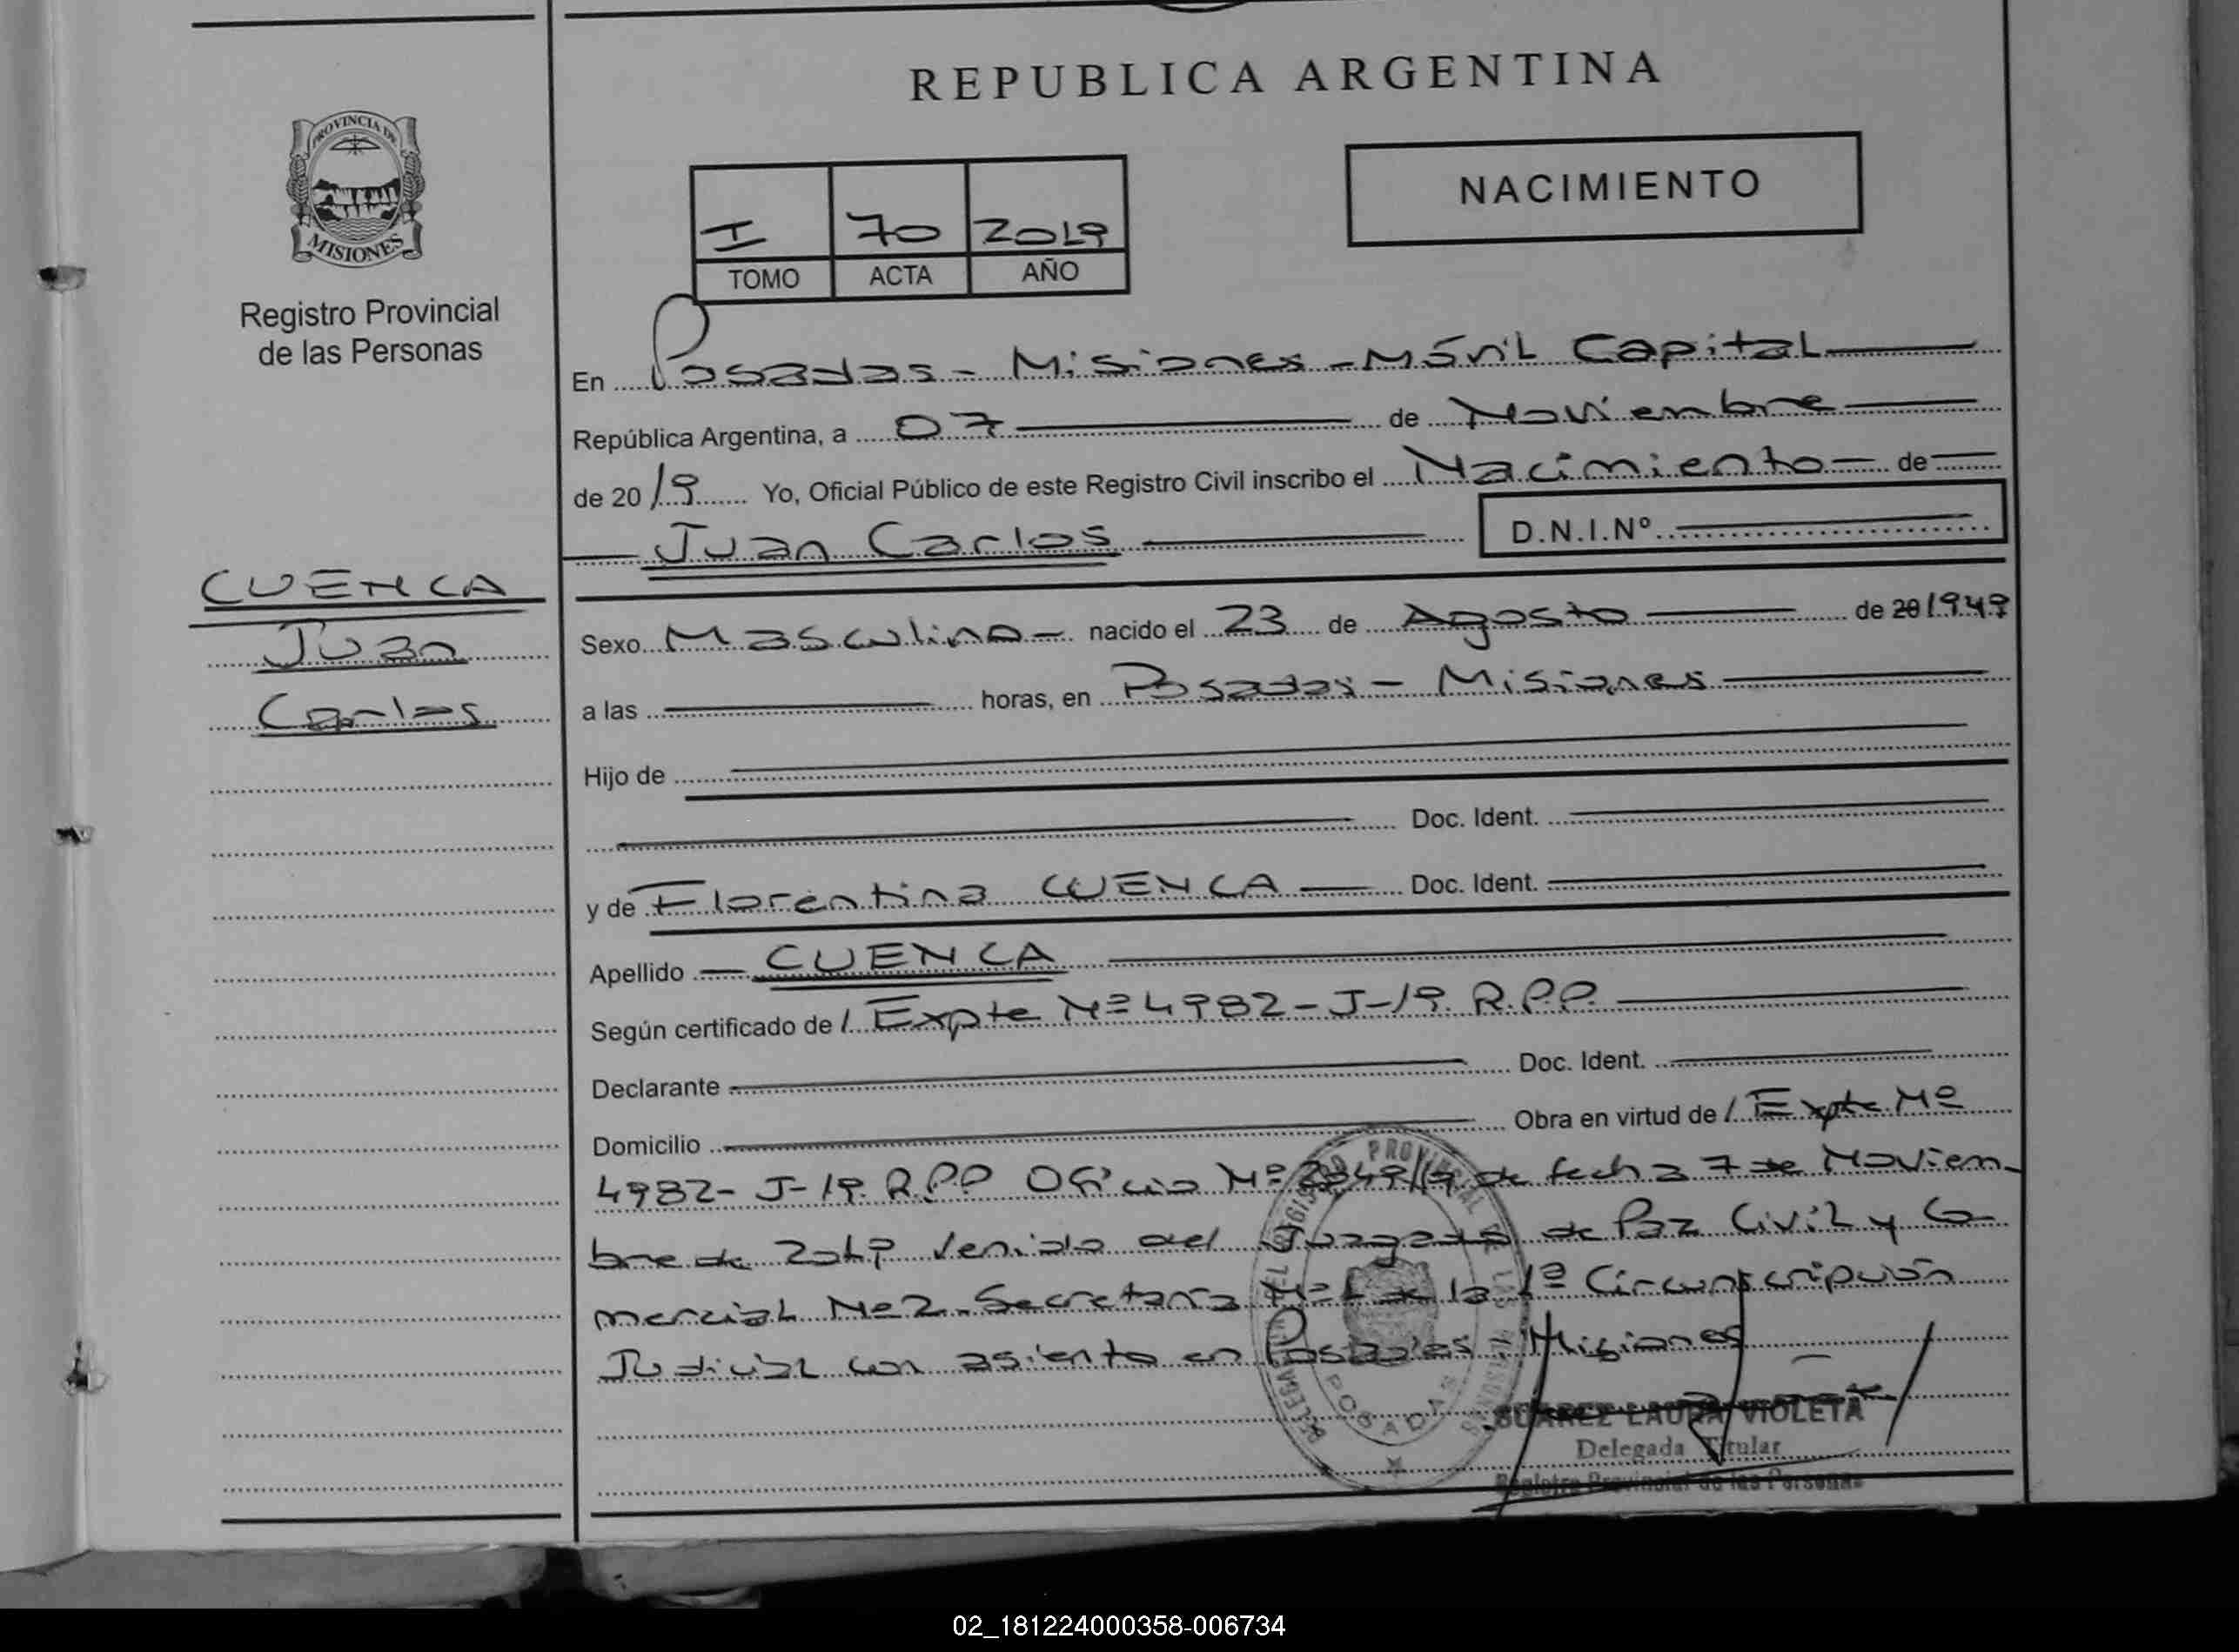 REPUBLICA ARGENTINA
PROVINCIA DE
MISIONES
Registro Provincial
de las Personas
NACIMIENTO
I 70 2019
TOMO ACTA AÑO
En Posadas - Misiones - Móvil Capital
República Argentina, a 07 de Noviembre
de 2019 Yo, Oficial Público de este Registro Civil inscribo el Nacimiento de
Juan Carlos D.N.I.Nº
CUENCA
Juan
Carlos
Sexo Masculino nacido el 23 de Agosto de 20 1949
a las horas, en Posadas - Misiones
Hijo de
Doc. Ident.
y de Florentina CUENCA Doc. Ident.
Apellido CUENCA
Según certificado de / Expte Nº 4982-J-19. R.P.P.
Declarante Doc. Ident.
Domicilio Obra en virtud de / Expte Nº
4982- J-19. R.P.P Oficio Nº de fecha 7 de Noviem-
bre de 2019 venido del Juzgado de Paz Civil y Co
mercial Nº 2. Secretaria Nº 1 de la 1ª Circunscripción
Judicial con asiento en Posadas - Misiones
POSADAS
SUAREZ LAURA VIOLETA
Delegada Titular
Registro Provincial de las Personas
02_181224000358-006734